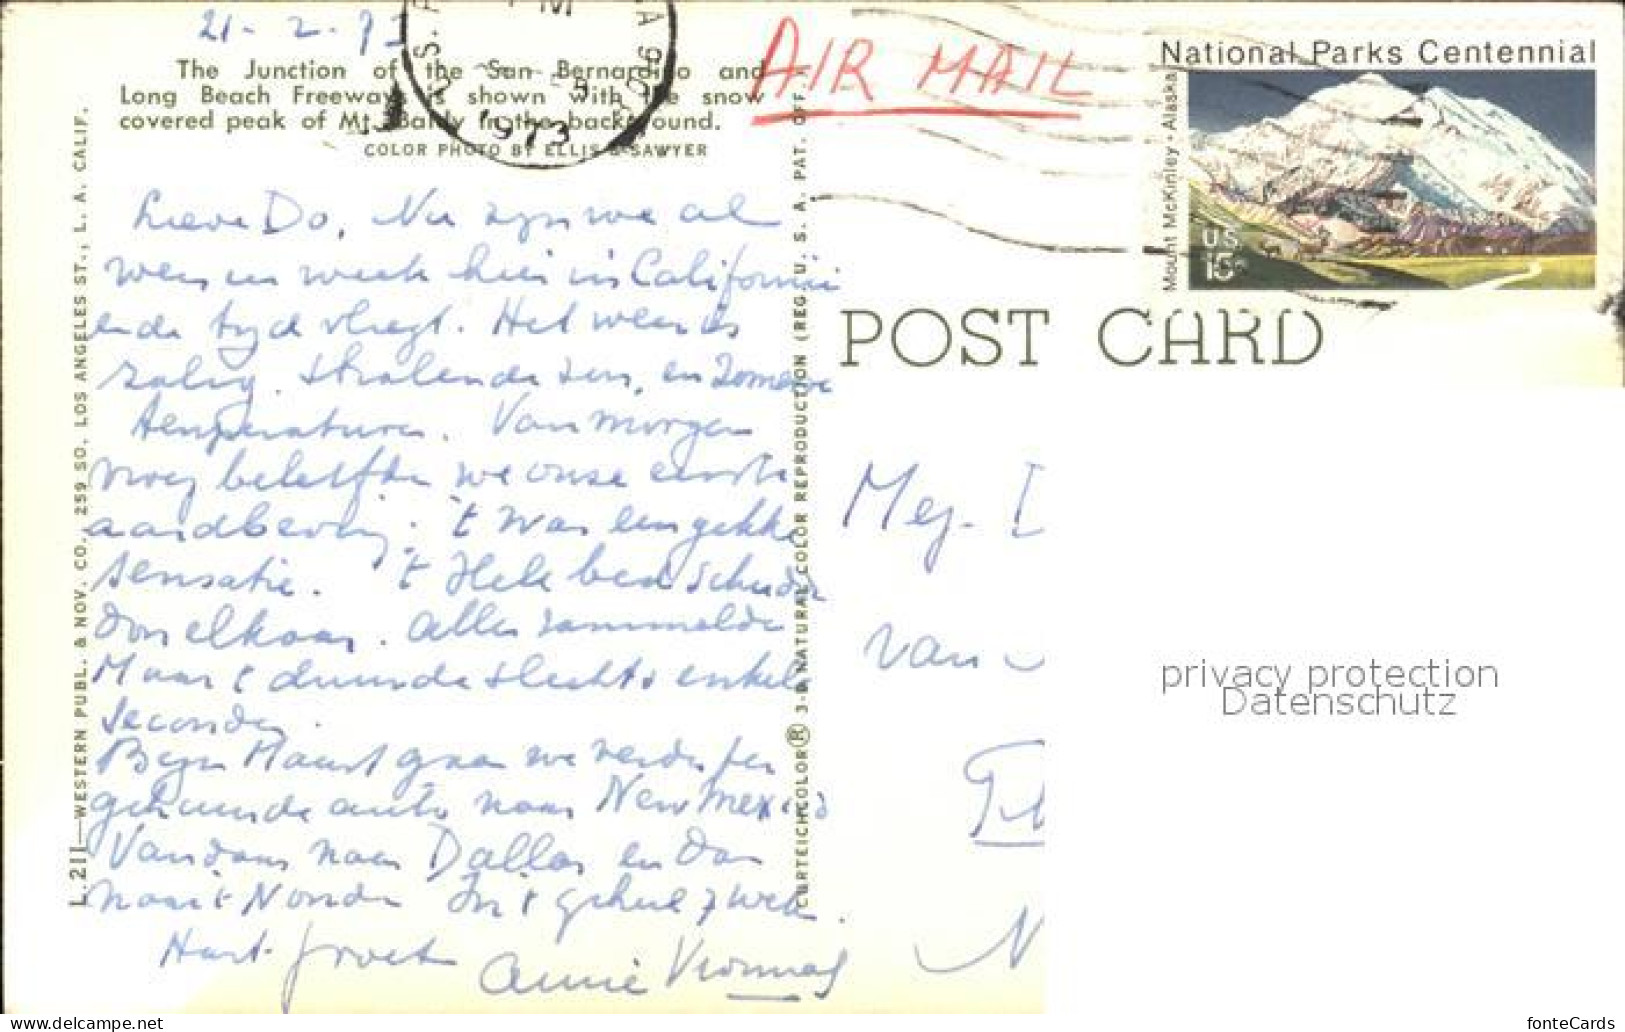 21-2-73
The Junction of the San Bernardino and
Long Beach Freeways is shown with the snow
covered peak of Mt. Baldy in the background.
COLOR PHOTO BY ELLIS & SAWYER
Lieve Do, Nu zijn we al
weer een week hier in Californie
en de tijd vliegt. Het weer is
zalig. Stralende zon, en zomerse
temperaturen. Van morgen
vroeg beleefden we onze eerste
aardbeving. 't Was een gekke
sensatie. 't Hele bed schudde
door elkaar. Alles rammelde
Maar 't duurde slechts enkele
seconden.
Begin Maart gaan we verder per
gehuurde auto naar New Mexico
Vandaar naar Dallas en dan
naar 't Noorden In 't geheel 7 weken.
Hart. groet Annie
L.211—WESTERN PUBL. & NOV. CO., 259 SO. LOS ANGELES ST., L. A. CALIF.
CURTEICHCOLOR® 3-D NATURAL COLOR REPRODUCTION (REG. U. S. A. PAT. OFF.)
AIR MAIL
1973
National Parks Centennial
Mount McKinley · Alaska
US
15c
POST CARD
Mej.
van
privacy protection
Datenschutz
L-211.delcampe.net
fonteCards